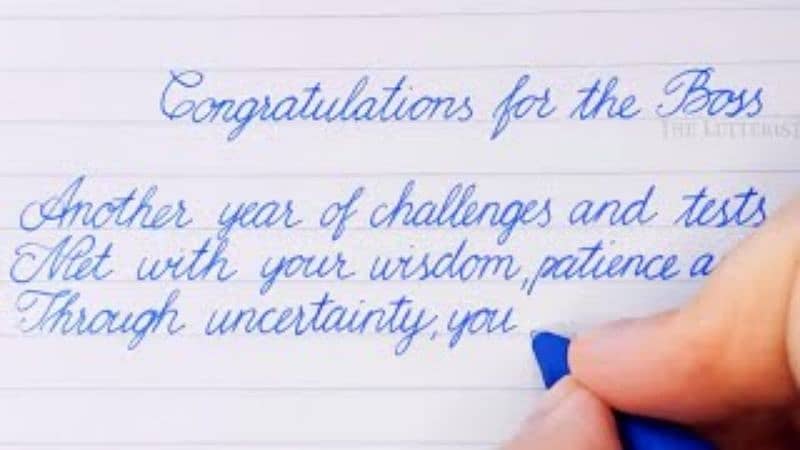 Congratulations for the Boss
THE LETTERIST
Another year of challenges and tests
Met with your wisdom, patience a
Through uncertainty, you